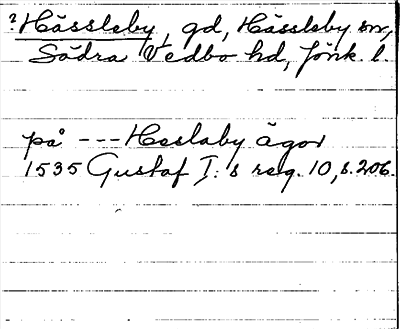 ?Hässleby, gd, Hässleby sn,
Södra Vedbo hd, Jönk. l.
på --- Hesslaby ägor
1535 Gustaf I:s reg. 10, s. 206.